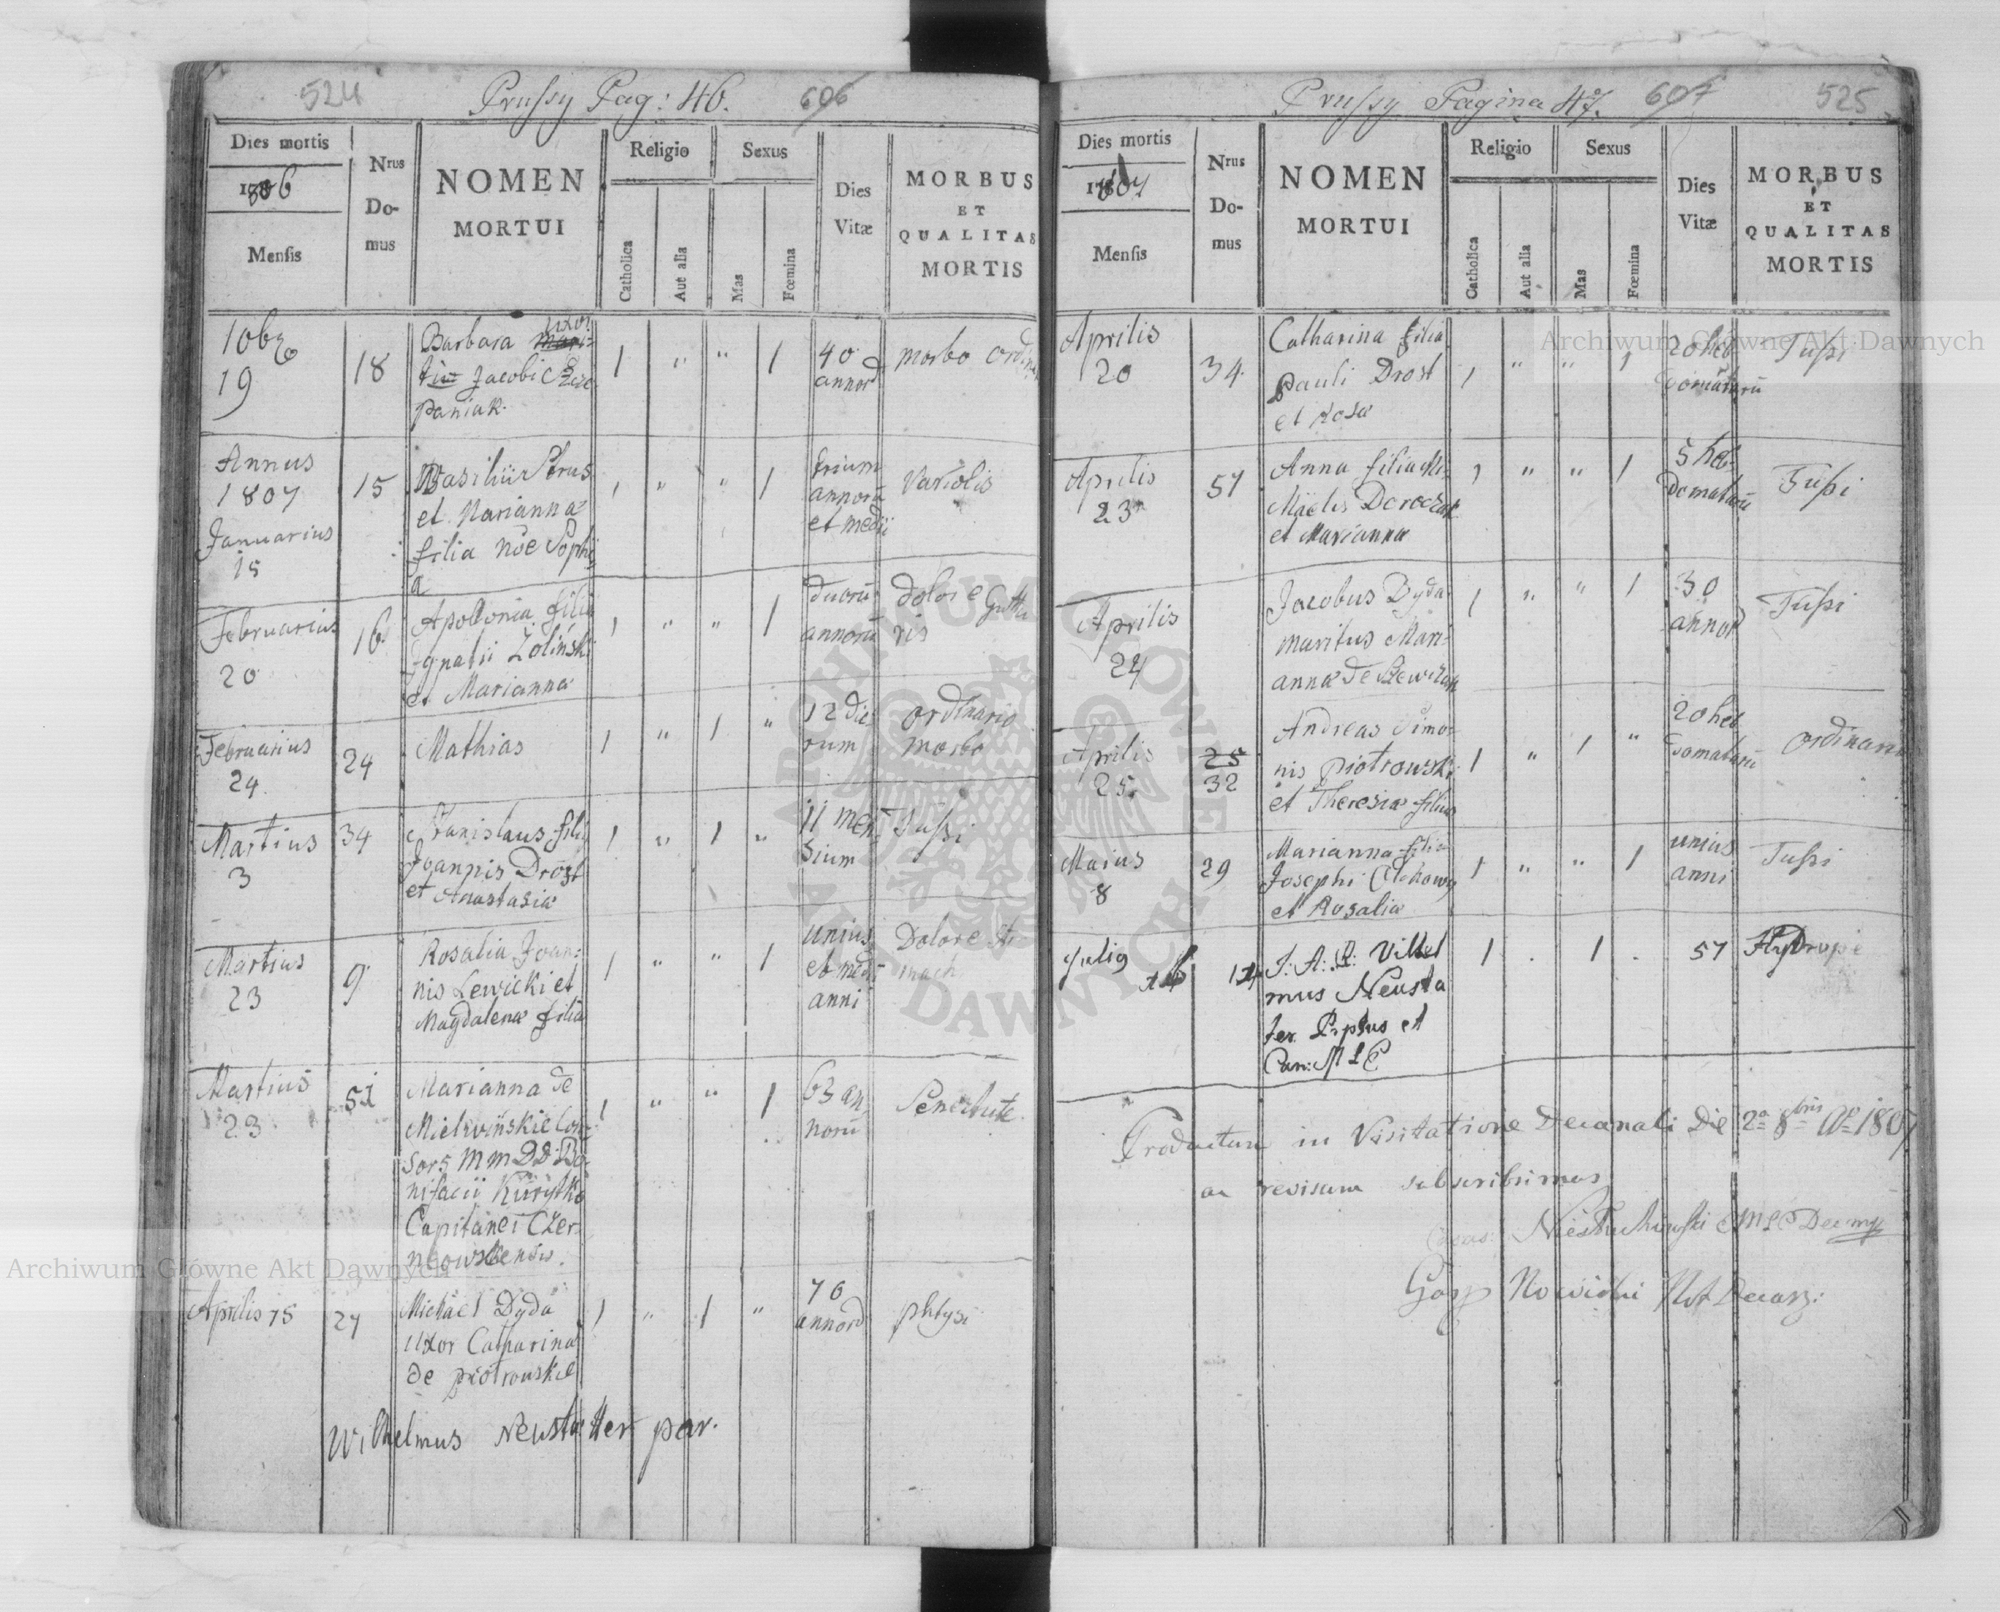 524
Prussy Pag: 46.
606
Dies mortis
1806
Mensis
Nrus
Do-
mus
NOMEN
MORTUI
Religio
Catholica
Aut alia
Sexus
Mas
Fœmina
Dies
Vitæ
MORBUS
ET
QUALITAS
MORTIS
10bṛ
19
18
Barbara uxor
Jacobi Szcze
paniak.
1 " " 1
40
annor
morbo ordinar
Annus
1807
Januarius
15
15
Basilii Petrus
et Marianna
filia noe Sophi
a
1 " " 1
trium
annorū
et medii
Variolis
Februarius
20
16
Apollonia filia
Ignatii Zolinski
et Marianna
1 " " 1
duorū
annorū
dolore Guttu
ris
Februarius
24
24
Mathias
1 " 1 "
12 die
rum
ordinario
morbo
Martius
3
34
Stanislaus fili9
Joannis Drozt
et Anastasiæ
1 " 1 "
11 men
sium
Tussi
Martius
23
9
Rosalia Joan:
nis Lewicki et
Magdalenæ filia
1 " " 1
unius
et medi
anni
Dolore sto
mach
Martius
23
51
Marianna de
Con
sors M m D D Bo
nifacii
Capitanei Czer
1 " " 1
63 an
norū
Senectute
Aprilis 15
27
Michael Dyda
uxor Catharina
de Piotrowskie
1 " 1 "
76
annord
phtysi
Wilhelmus Neustatter par.
Prussy Pagina 47.
607
525
Dies mortis
1807
Mensis
Nrus
Do-
mus
NOMEN
MORTUI
Religio
Catholica
Aut alia
Sexus
Mas
Fœmina
Dies
Vitæ
MORBUS
ET
QUALITAS
MORTIS
Aprilis
20
34
Catharina filia
Pauli Drost
et Rosa
1 " " 1
20 heb
domatarū
Tussi
Aprilis
23
57
Anna filia Mi
Miélis Doroczak
et Marianna
1 " " 1
5 heb
domatarū
Tussi
Aprilis
24
Jacobus Dyda
maritus Mari
annæ de Szewczak
1 " " 1
30
annor
Tussi
Aprilis
25
25
32
Andreas Simo
nis Piotrowski
et Theresiæ filius
1 " 1 "
20 heb
domatarū
ordinario
Maius
8
29
Marianna filia
Josephi
et Rosaliæ
1 " " 1
unius
anni
Tussi
Julig
14
J: A: R: Vilhel
mus Neusta
ter Pptus et
Can: M L C
1 . 1 .
57
Hydropi
Productum in Visitatione Decanali Die 2a 8bris Ao 1807
ac revisum subscribimus
Nieśtuchowski C M L C Dec mp
Gasp Nowicki Not Decan: